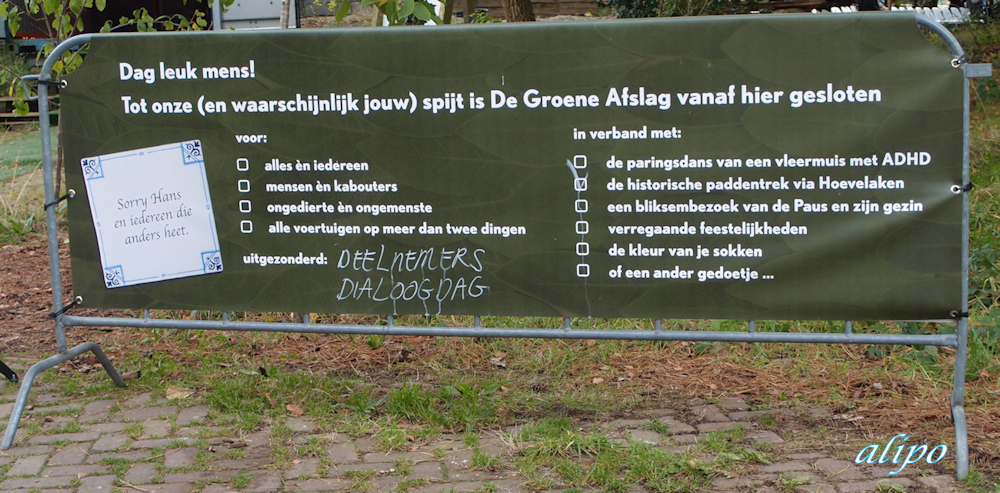 Dag leuk mens!
Tot onze (en waarschijnlijk jouw) spijt is De Groene Afslag vanaf hier gesloten
Sorry Hans
en iedereen die
anders heet.
voor:
alles èn iedereen
mensen èn kabouters
ongedierte èn ongemenste
alle voertuigen op meer dan twee dingen
uitgezonderd: DEELNEMERS
DIALOOGDAG
in verband met:
de paringsdans van een vleermuis met ADHD
de historische paddentrek via Hoevelaken
een bliksembezoek van de Paus en zijn gezin
verregaande feestelijkheden
de kleur van je sokken
of een ander gedoetje ...
alipo